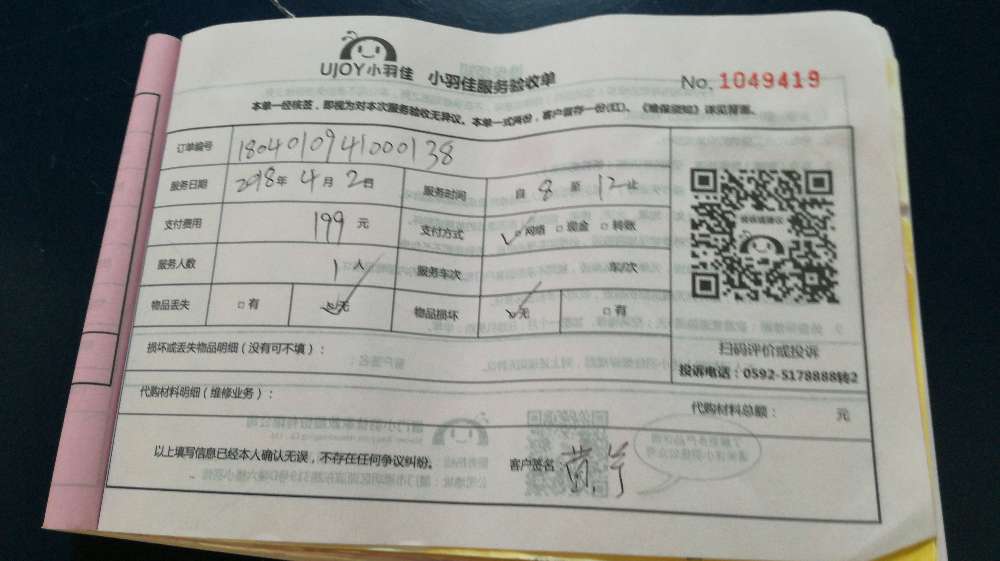 UJOY小羽佳 小羽佳服务验收单 No. 1049419
本单一经核签，即视为对本次服务验收无异议。本单一式两份，客户留存一份(红)。《维保须知》详见背面。
订单编号 1804010941000138
服务日期 2018年 4月 2日 服务时间 自 8 至 12止
支付费用 199 元 支付方式 ✓□网络 □现金 □转账
服务人数 1人 服务车次 车/次
物品丢失 □有 ✓无 物品损坏 ✓无 □有
扫码评价或投诉
投诉电话：0592-5178888转2
损坏或丢失物品明细（没有可不填）：
代购材料明细（维修业务）：
代购材料总额： 元
以上填写信息已经本人确认无误，不存在任何争议纠纷。 客户签名